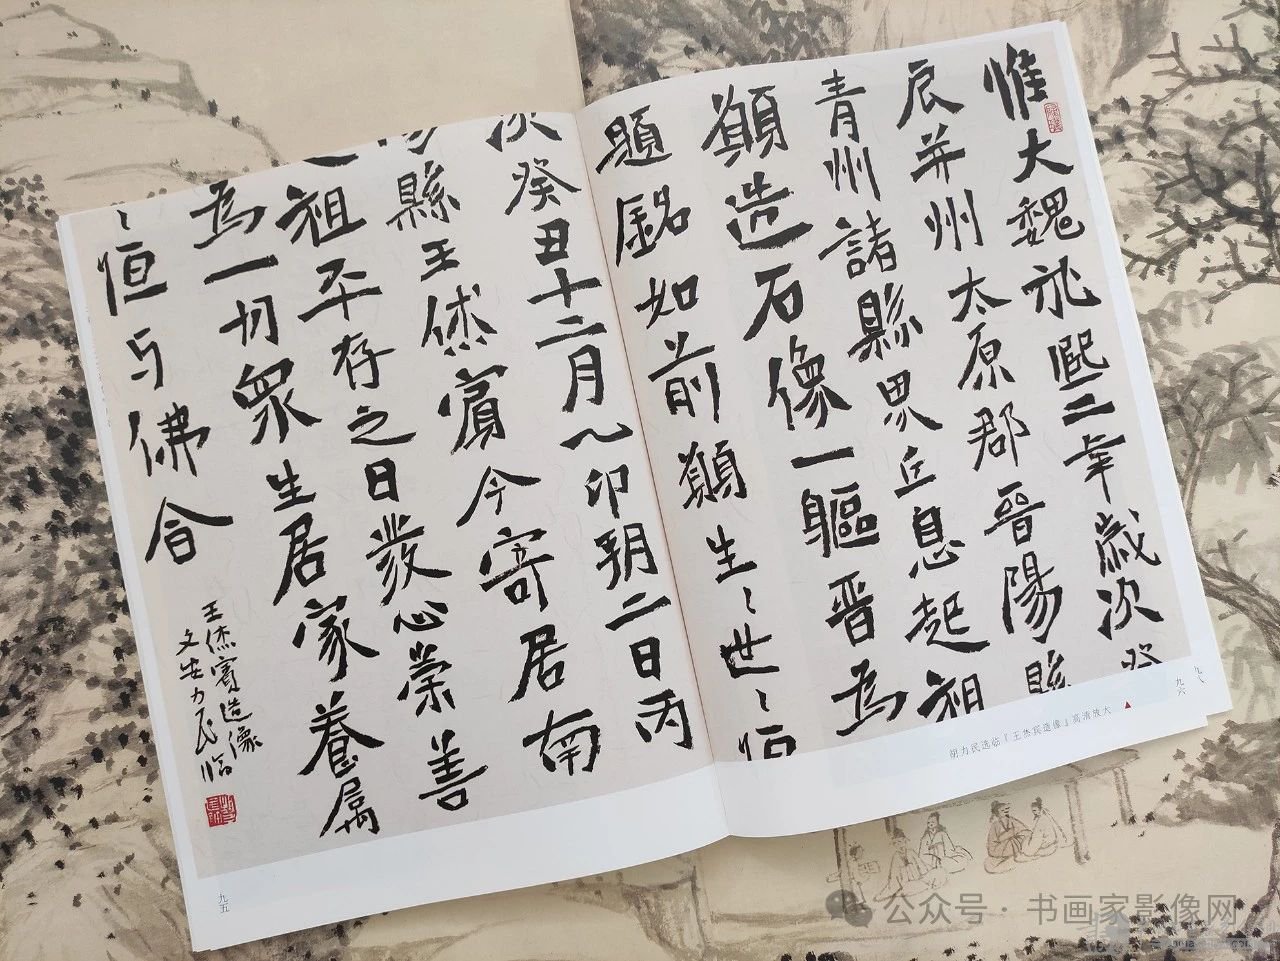 惟大魏永熙二年歲次癸
辰并州太原郡晉陽縣
青州諸縣界丘息起祖
願造石像一軀晉為
題銘如前願生〻世〻恒
次癸丑十二月乙卯朔二日丙
縣王賓今寄居南
祖平存之日發心崇善
為一切眾生居家養属
〻恒与佛合
王賓造像
文安力民临
胡力民选临『王宾造像』高清放大 ▲
九六
九五
公众号 · 书画家影像网